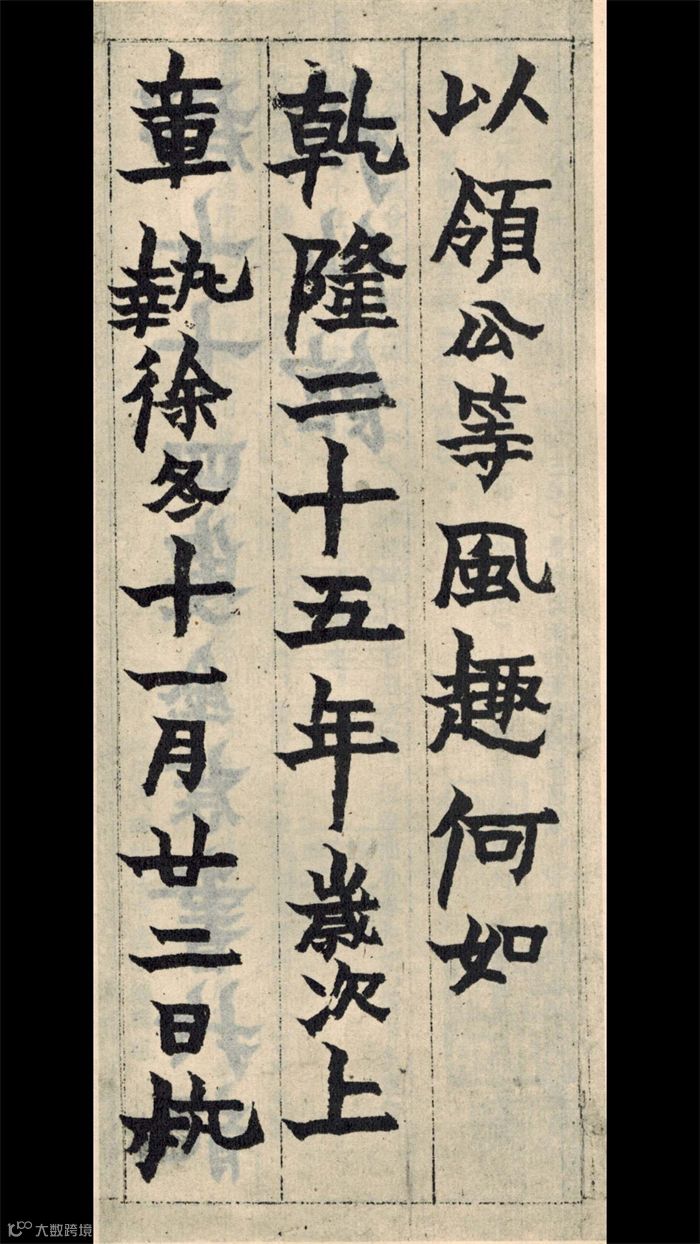 以領公等風趣何如
乾隆二十五年歲次上
章執徐冬十一月廿二日杭
大数跨境